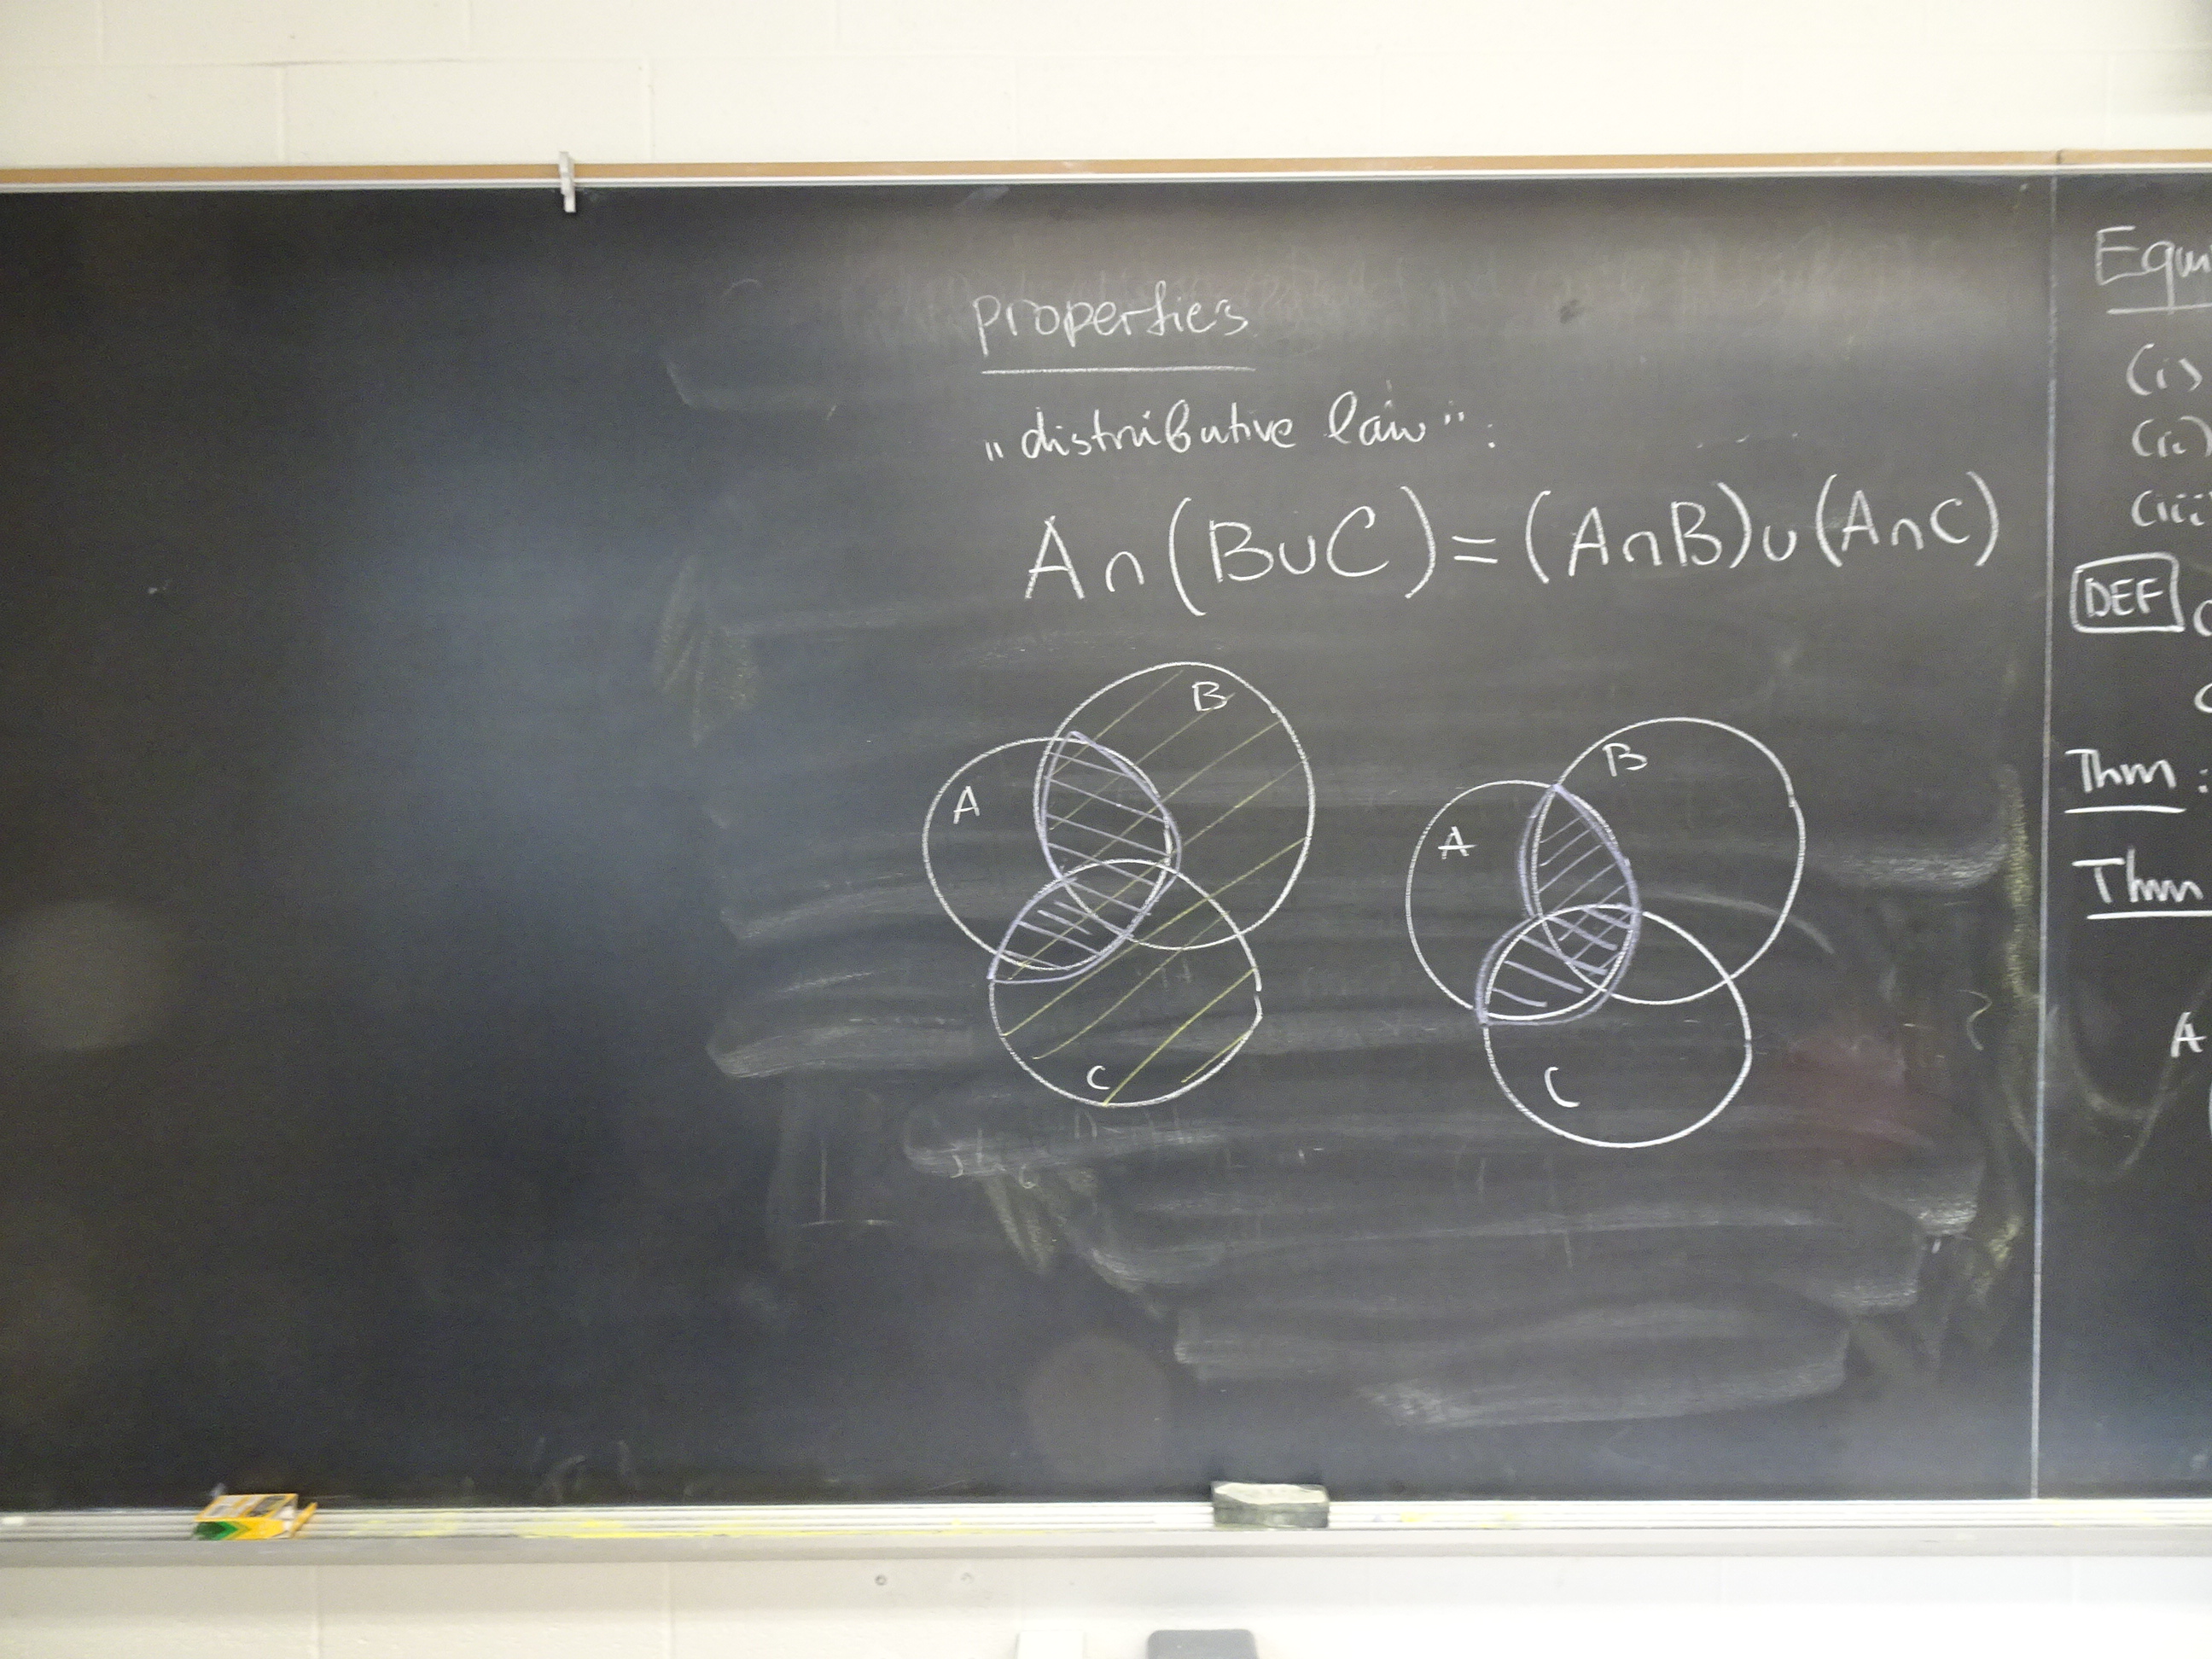 properties
„distributive law":
A∩(B∪C)=(A∩B)∪(A∩C)
B
A
C
B
A
C
Equi
(i)
(ii)
(iii
DEF
Thm:
Thm
A